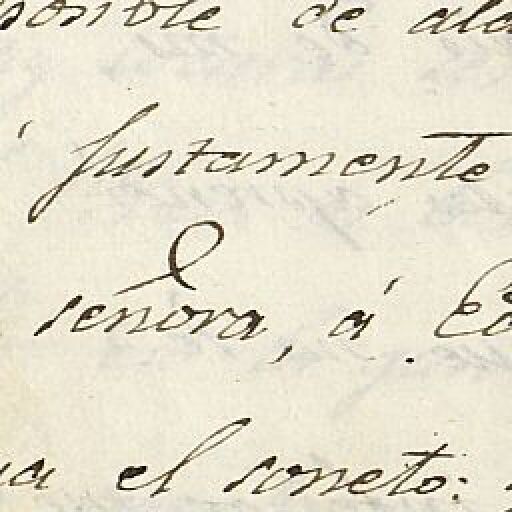 posible de
justamente
señora, á
el soneto: